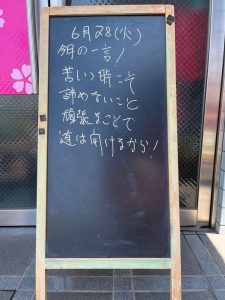 6月28(火)
今日の一言!
苦しい時こそ
諦めないこと
頑張ることで
道は開けるから!